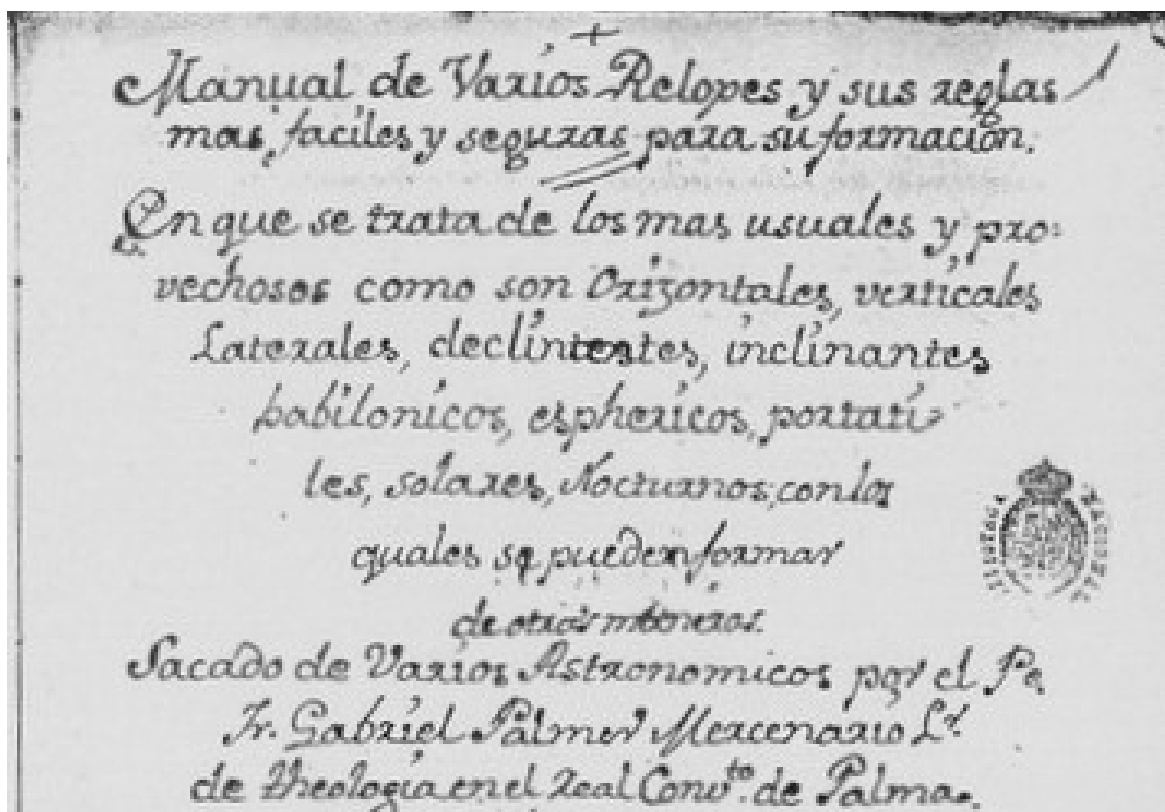 Manual de Varios Relopes y sus reglas
mas faciles y seguras para su formación.
En que se trata de los mas usuales y pro-
vechosos como son Orizontales, verticales
Laterales, declintestes, inclinantes
babilonicos, esphericos, portati-
les, solares, Nocturnos, con los
quales se pueden formar
de otros
Sacado de Varios Astronomicos por el Pe.
Fr. Gabriel Palmer Mercenario Lr.
de theologia en el Real Convto. de Palma.